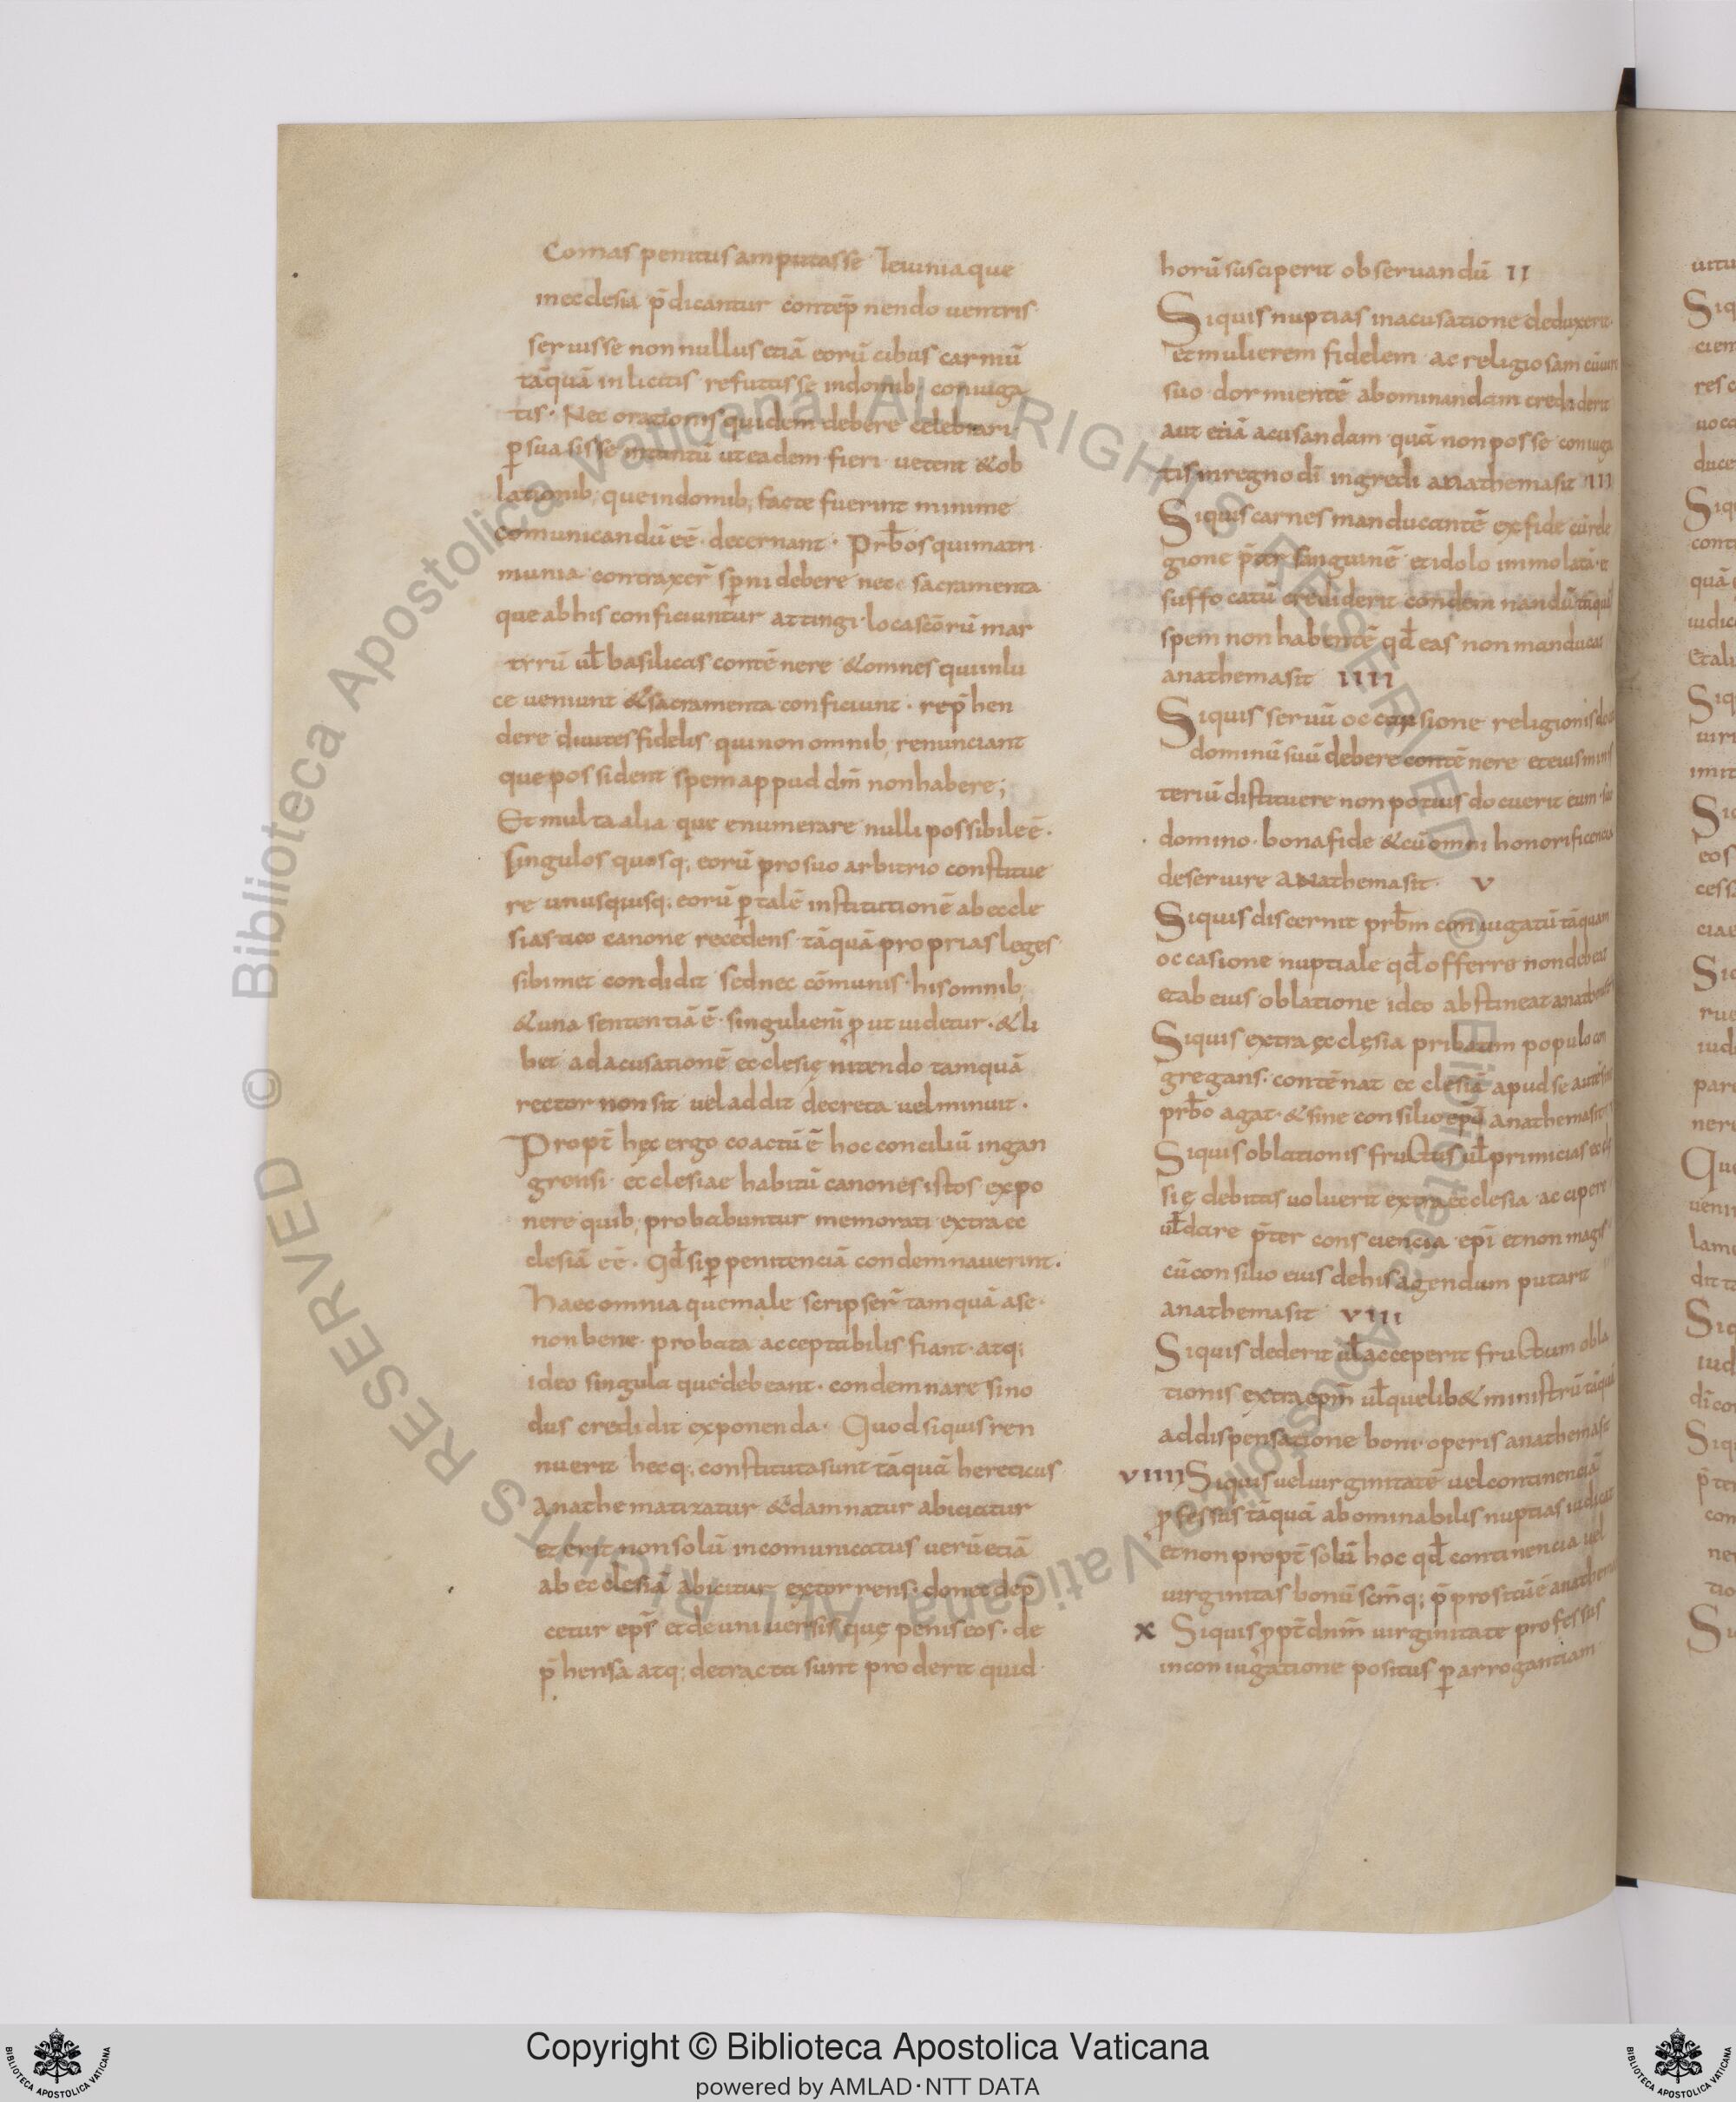 Comas penitus amputasse Ieiunia que
in ecclesia p̄dicantur contēp nendo uentris
seruisse non nullus etiā eorū cibus carniū
tāquā inlicitis refutisse in domib; coniuga
tis. Nec orationis quidem debere celebrari
ꝑsuasisse intantū ut eadem fieri uetent & ob
lationib; que in domib; facte fuerint minime
comunicandū eē. decernant. Prb̄os qui matri
munia contraxer̄ sꝑni debere nec sacramenta
que ab his conficiuntur attingi. loca scōrū mar
trrū ul̄ basilicas contēnere & omnes qui inlu
ce ueniunt & sacramenta conficiunt. rep̄hen
dere diuites fidelis qui non omnib; renunciant
que possident spem appud dm̄ non habere;
Et multa alia que enumerare nulli possibile ē.
singulos quosq; eorū pro suo arbitrio constitue
re unusquisq; eorū ꝑ talē institutionē ab eccle
siastico canone recedens tāquā proprias leges
sibimet condidit sed nec cōmunis his omnib;
& una sententiā ē. singuli enī ꝓut uidetur. & li
bet ad acusationē ecclesię nitendo tamquā
rector non sit uel addit decreta uel minuit.
Propt̄ hęc ergo coactū ē hoc conciliū in gan
grensi ecclesiae habitū canones istos expo
nere quib; probabuntur memorati extra ec
clesiā eē. Qd̄ si ꝑ penitenciā condemnauerint.
Haec omnia que male scripser̄ tamquā a se
non bene probata acceptabilis fiant. atq;
ideo singula que debeant. condemnare sino
dus credidit exponenda. Quod siquis ren
nuerit hecq; constituta sunt tāquā hereticus
anathematizatur & damnatur abiciatur
et erit non solū incomunicatus uerū etiā
ab ecclesiā abicitur extorrens. donec dep
cetur eps̄ et de uniuersis quę penis eos. de
p̄hensa atq; detracta sunt proderit quid
horū susciperit obseruandū II
Siquis nuptias in acusatione deduxerit.
et mulierem fidelem ac religiosam cū uiro
suo dormientē abominandam crediderit
aut etiā acusandam quā non posse coniuga
tis in regno dī ingredi anathema sit III
Siquis carnes manducantē ex fide cū reli
gione p̄ter sanguinē et idolo immolatā et
suffocatū crediderit condemnandū tāquā
spem non habentē qd̄ eas non manducat
anathema sit IIII
Siquis seruū occansione religionis doceat
dominū suū debere contēnere et eius minis
teriū distituere non potius docuerit eum suo
domino. bona fide & cū omni honorificencia
deseruire anathema sit. V
Siquis discernit prb̄m coniugatū tāquam
occasione nuptiale qd̄ offerre non debeat
et ab eius oblatione ideo abstineat anathema sit
Siquis extra ęcclęsia pribatim populo con
gregans. contēnat ecclesiā apud se autē sine
prb̄o agat. & sine consilio epī anathema sit
Siquis oblationis fructus ul̄ primicias eccle
się debitas uoluerit extra ecclesia accipere
ul̄ dare p̄ter consciencia epī et non magis
cū consilio eius de his agendum putarit
anathema sit VIII
Siquis dederit ul̄ acceperit fructum obla
tionis extra epm̄ ul̄ quelib& ministrū tāquā
ad dispensatione boni operis anathema sit
VIIII Siquis uel uirginitatē uel continenciā
ꝓfessus tāquā abominabilis nuptias iudicat
et non propt̄ solū hoc qd̄ continencia uel
uirginitas bonū scm̄q; p̄prositū ē anathema
X Siquis ꝓpt̄ dnm̄ uirginitate professus
in coniugatione positus ꝑ arrogantiam
Copyright © Biblioteca Apostolica Vaticana
powered by AMLAD·NTT DATA